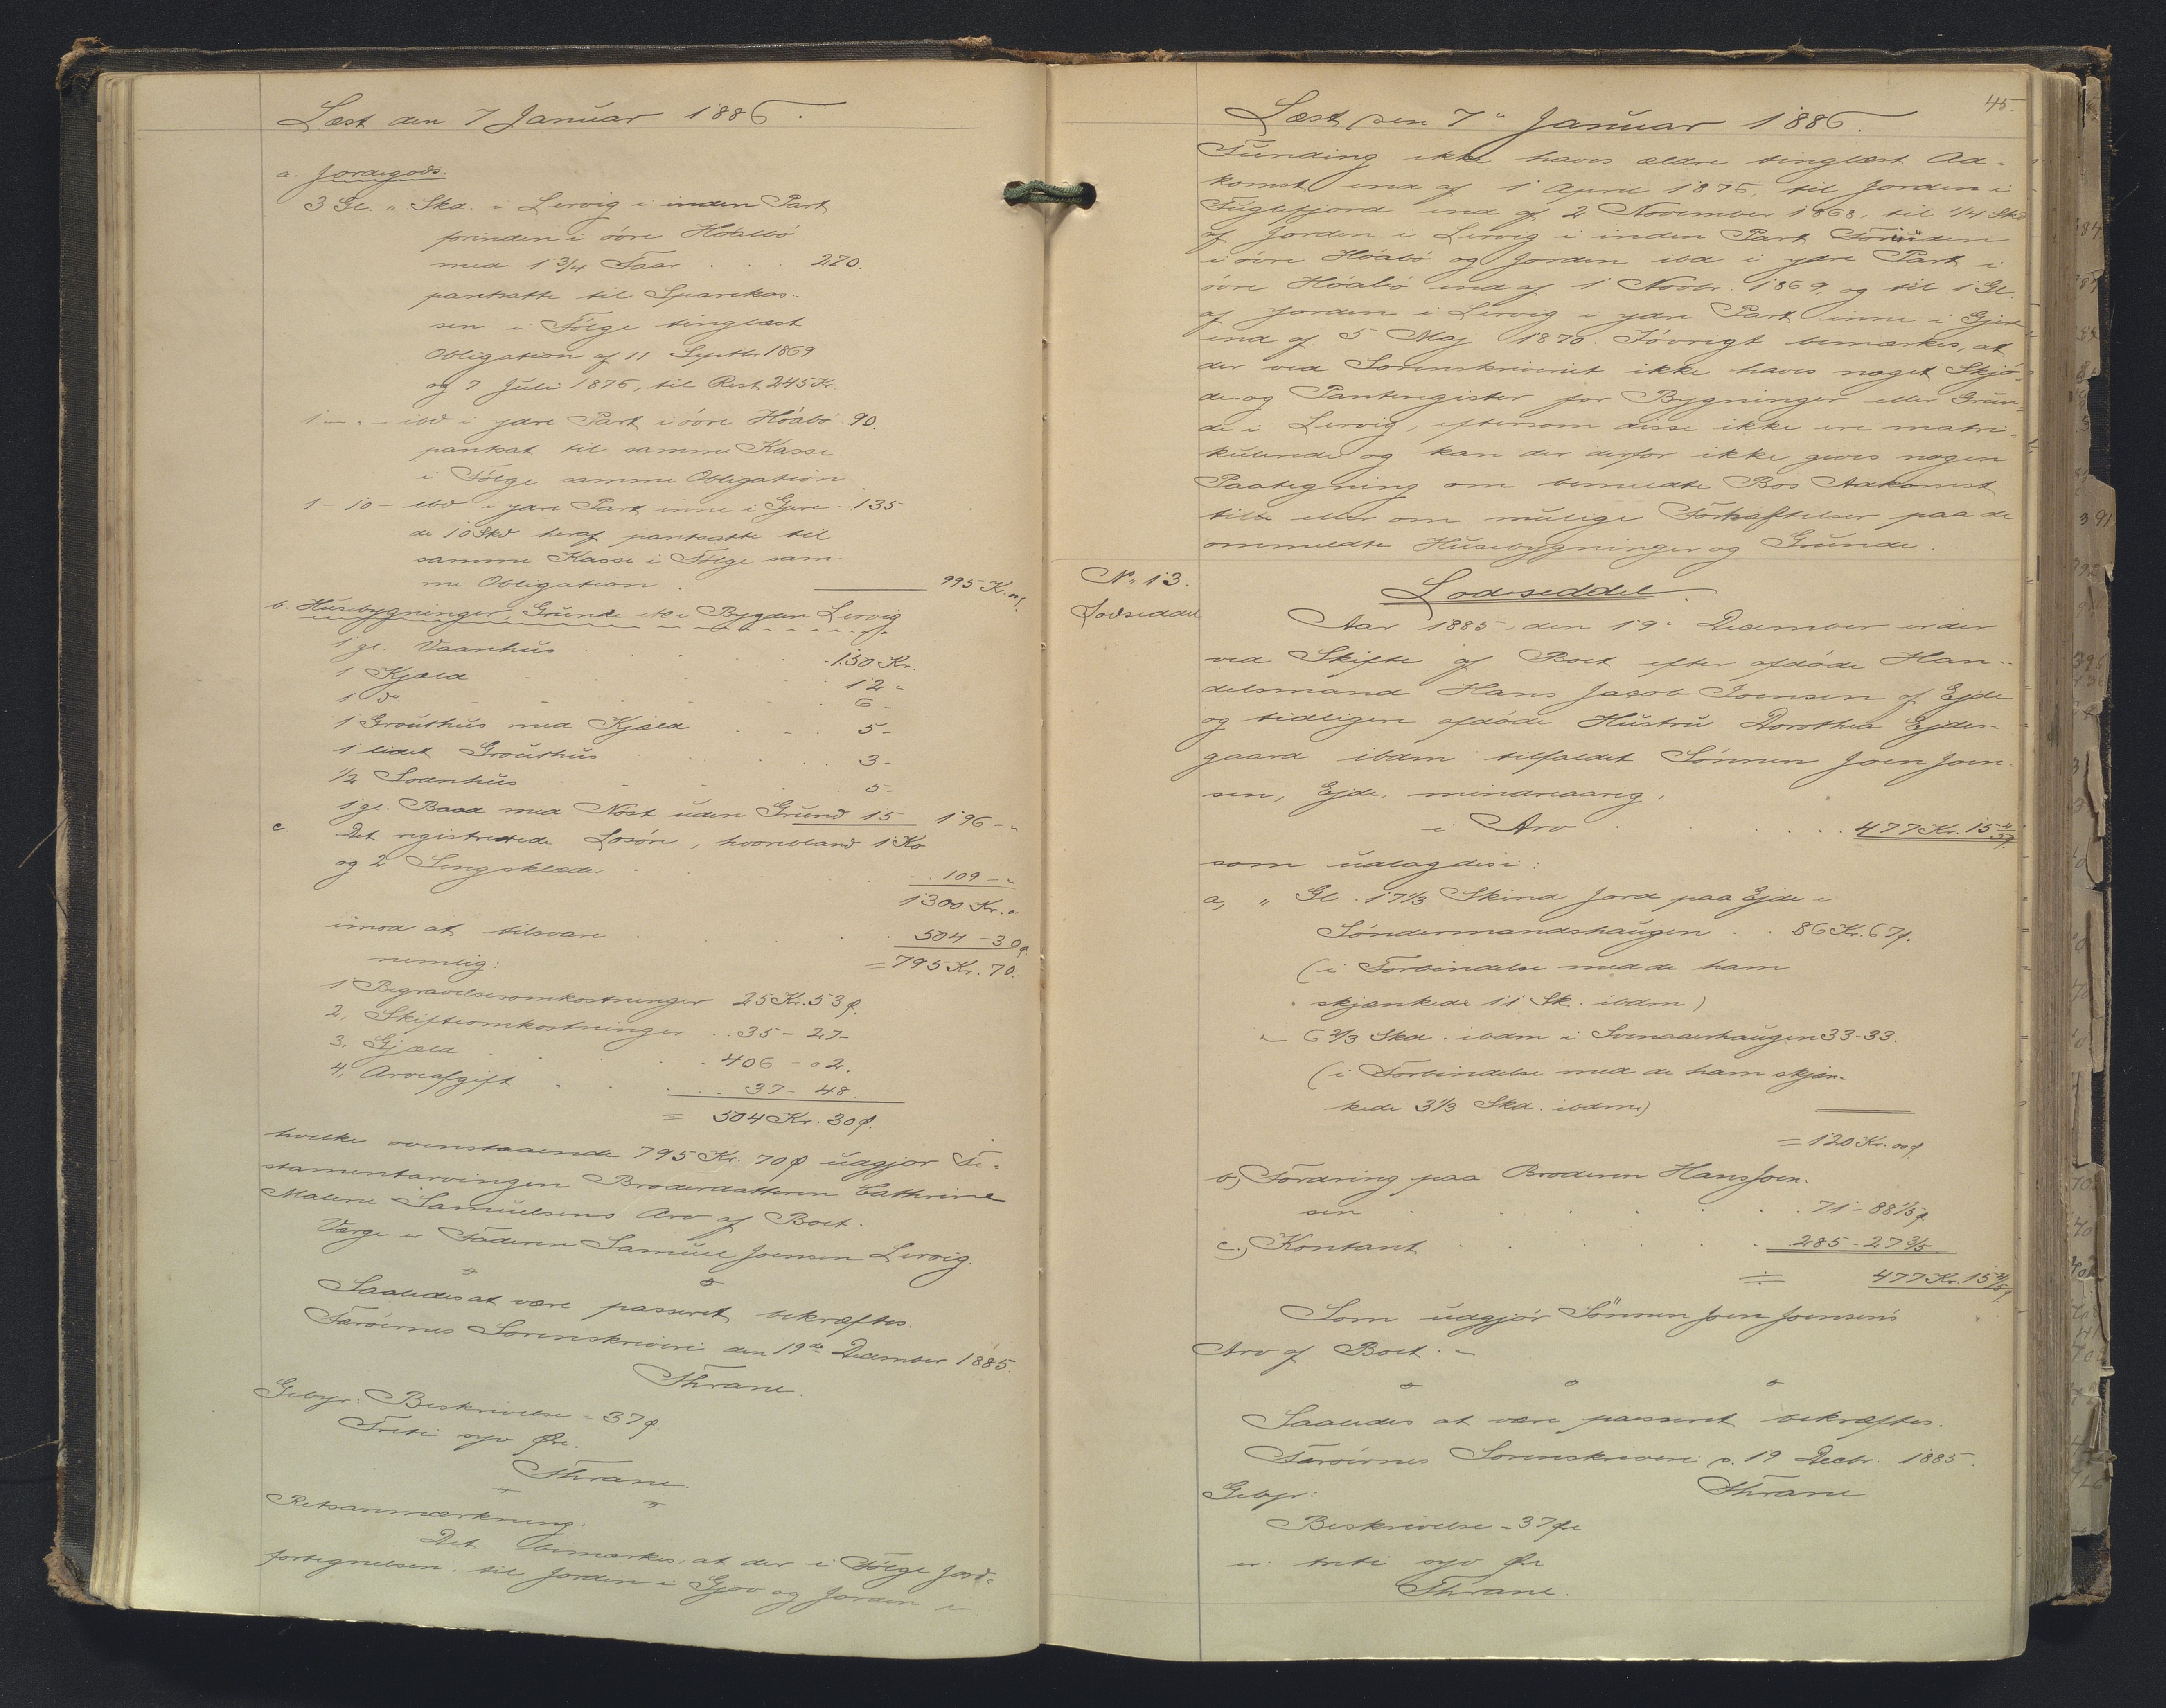 Læst den 7 Januar 1886.
a. Jordegods.
3 Gl. " Skd. i Lervig i inden Part
forinden i óvre Hóabó
med 1 3/4 Faar . . . 270.
pantsatte til Sparekas-
sen i Fólge tinglæst
Obligation af 11 Septbr 1869
og 7 Juli 1875, til Rest 245 Kr.
1 - " - ibd i ydre Part i óvre Hóabó 90.
pantsat til samme Kasse
i Fólge samme Obligation
1 - 10 - ibd i ydre Part inne i Gjere . 135
de 10 Skd heraf pantsatte til
samme Kasse i Fólge sam-
me Obligation . 995 Kr. "f.
b. Husebygninger, Grunde etc i Bygden Lervig
1 gl. Vaanhus . . . 150 Kr.
1 Kjæld . . . 12 "
1 do . . . 6 -
1 Grouthus med Kjæld . . . 5 -
1 lidet Grouthus . . . 3 -
1/2 Soenhus . . . 5 -
1 gl. Baad med Nóst uden Grund 15 196 - "
c. Det registrerede Losóre, hvoriblandt 1 Ko
og 2 Sengeklæder . . . 109 - "
1300 Kr. "
imod at tilsvare . . . 504 - 30 f.
nemlig: = 795 Kr. 70.
1 Begravelsesomkostninger 25 Kr. 53 f.
2. Skifteomkostninger . . 35 - 27 -
3. Gjæld . . . 406 - 02.
4. Arveafgift . . . 37 - 48.
= 504 Kr. 30 f.
hvilke ovenstaaende 795 Kr. 70 f udgjor Te-
stamentarvingen Broderdatteren Cathrine
Malene Samuelsens Arv af Boet.
Værge er Faderen Samuel Joensen Lervig.
Saaledes at være passeret bekræftes.
Færóernes Sorenskriveri den 19de December 1885.
Thrane.
Gebyr: Beskrivelse = 37 f.
Treti syv Øre.
Thrane.
Retsanmærkning.
Det bemærkes, at der i Fólge Jord-
fortegnelsen til Jorden i Gjov og Jorden i
45.
Læst den 7" Januar 1886.
Funding ikke haves ældre tinglæst Ad-
komst end af 1 April 1875, til Jorden i
Fuglefjord end af 2 November 1868, til 1/4 Skd
af Jorden i Lervig i inden Part Forinden
i óvre Hóabó og Jorden ibd i ydre Part i
óvre Hóabó end af 1 Novbr. 1869, og til 1 Gl.
af Jorden i Lervig i ydre Part inne i Gjere
end af 5 Maj 1870. Ióvrigt bemærkes, at
der ved Sorenskriveriet ikke haves noget Skjó-
de- og Panteregister for Bygninger eller Grun-
de i Lervig, eftersom disse ikke ere matri-
kulerede og kan der derfor ikke gives nogen
Paategning om bemeldte Bos Adkomst
till eller om mulige Forhæftelser paa de
ommeldte Husebygninger og Grunde.
No 13.
Lodseddel
Lodseddel.
Aar 1885, den 19" December er der
ved Skifte af Boet efter afdóde Han-
delsmand Hans Jacob Joensen af Ejde
og tidligere afdóde Hustru Dorothea Ejdes-
gaard ibdm tilfaldet Sónnen Joen Joen-
sen, Ejde, mindreaarig,
i Arv . . . 477 Kr. 15 4/5 f.
som udlagdes i:
a, " Gl. 17 1/3 Skind Jord paa Ejde i
Sóndermandshaugen . . 86 Kr. 67 f.
(i Forbindelse med de ham
skjænkede 11 Sk. ibdm)
" 6 2/3 Skd. ibdm i Svenaaerhaugen 33 - 33.
(i Forbindelse med de ham skjæn-
kede 3 1/3 Skd. ibdm)
= 120 Kr. 00 f.
b, Fordring paa Broderen Hans Joen-
sen . . . 71 - 88 1/5 f.
c., Kontant . . . 285 - 27 3/5
= 477 Kr. 15 4/5 f.
Som udgjór Sónnen Joen Joensens
Arv af Boet. -
Saaledes at være passeret bekræftes.
Færóernes Sorenskriveri d. 19 Decbr. 1885.
Thrane
Gebyr:
Beskrivelse = 37 Øre
er: treti syv Øre
Thrane.